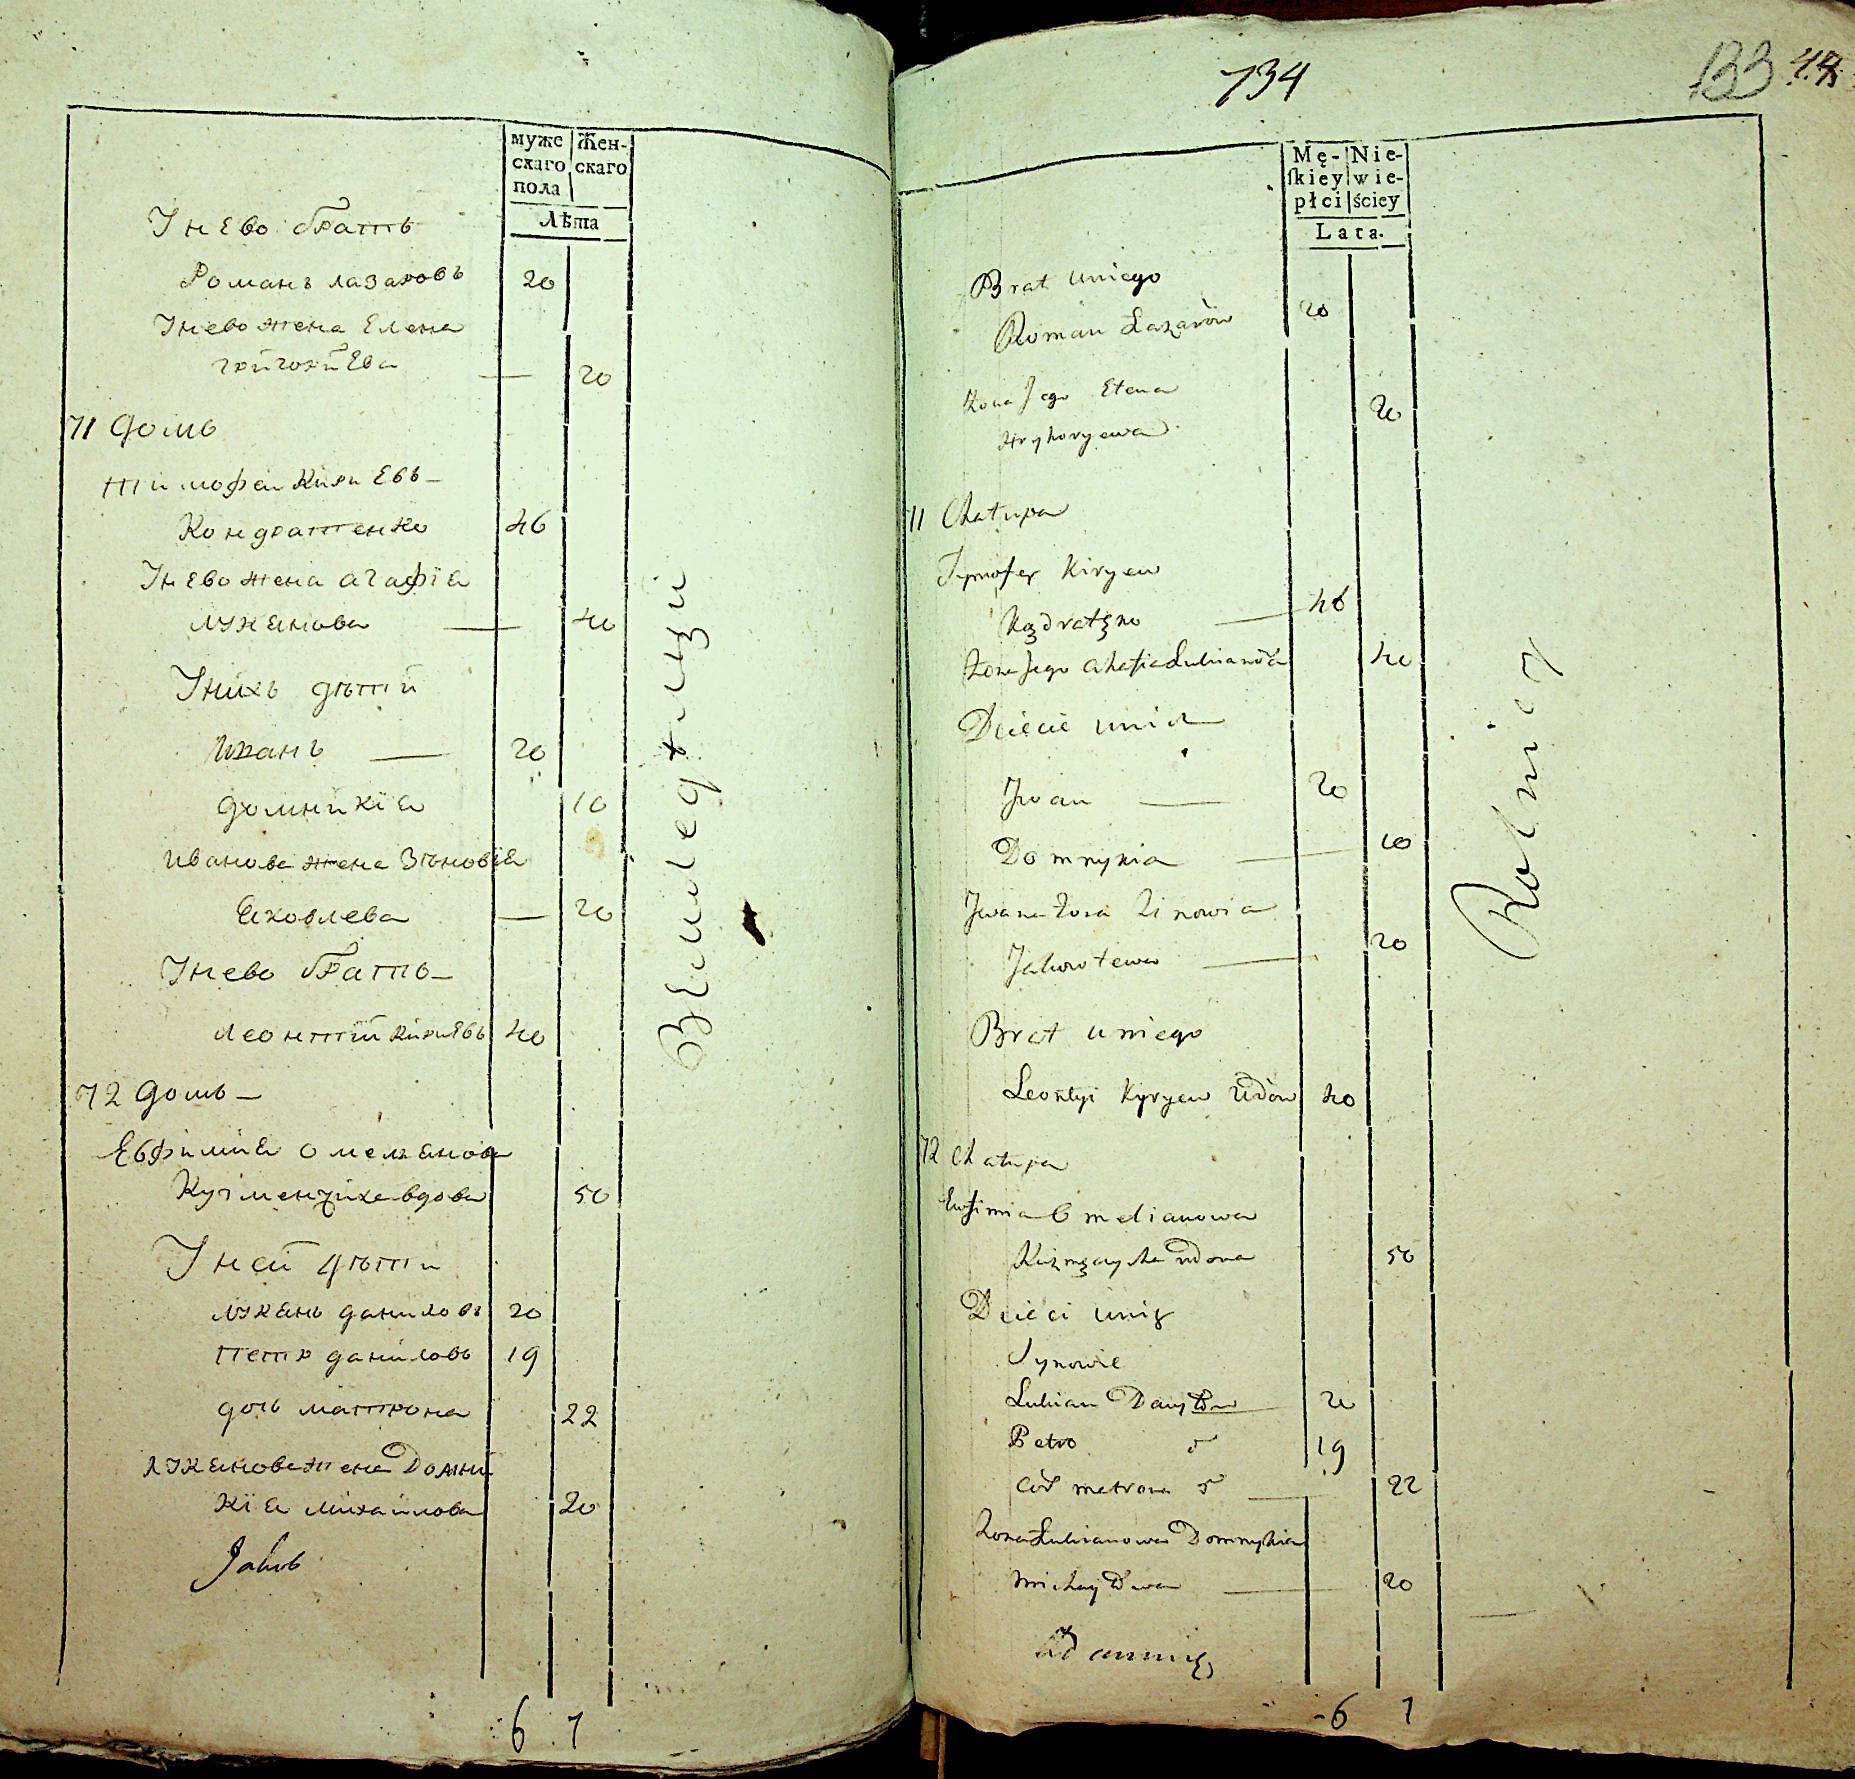 муже Жен-
скаго скаго
пола
Лѣта
Унево братъ
Романъ лазаровъ 20
Унево жена Елена
григориева — 20
71 домъ
тимофеи Кириевъ
Кондратенко 46
Унево жена агафіа
лукянова — 40
Унихъ дѣти
Иванъ — 20
домникіа 10
Иванова жена Зѣновія
Яковлева — 20
Унево братъ
леонтій Кириевъ 40
72 домъ
Евфимиа омелянова
Кузменчиха вдова 50
Уней дѣти
лукянъ даниловъ 20
петръ даниловъ 19
дочъ матрона 22
лукянова жена Домни
кія михаилова 20
Jakub
6 7
Земледѣлцы
734
133
Mę- Nie-
ſkiey wie-
płci ściey
Lata.
Brat uniego
Roman Łazarów 20
żona Jego Elena
Hryhoryewa 20
71 Chałupa
Tymofey Kiryew
Kądratęko — 46
żona Jego Ahafia Łukianowa 40
Dziecie unich
Jwan — 20
Domnykia — 10
Jwana żona Zinowia
Jakowlewa — 20
Brat uniego
Leontyi Kyryew Udow 40
72 Chałupa
Eufimia Omelianowa
Kuzmęczycha udowa 50
Dzieci unię
Synowie
Łukian Danyłow 20
Petro 19
Cór matrona — 22
żona Łukianowa Domnykia
Michayłowa — 20
6 7
Rolnicy